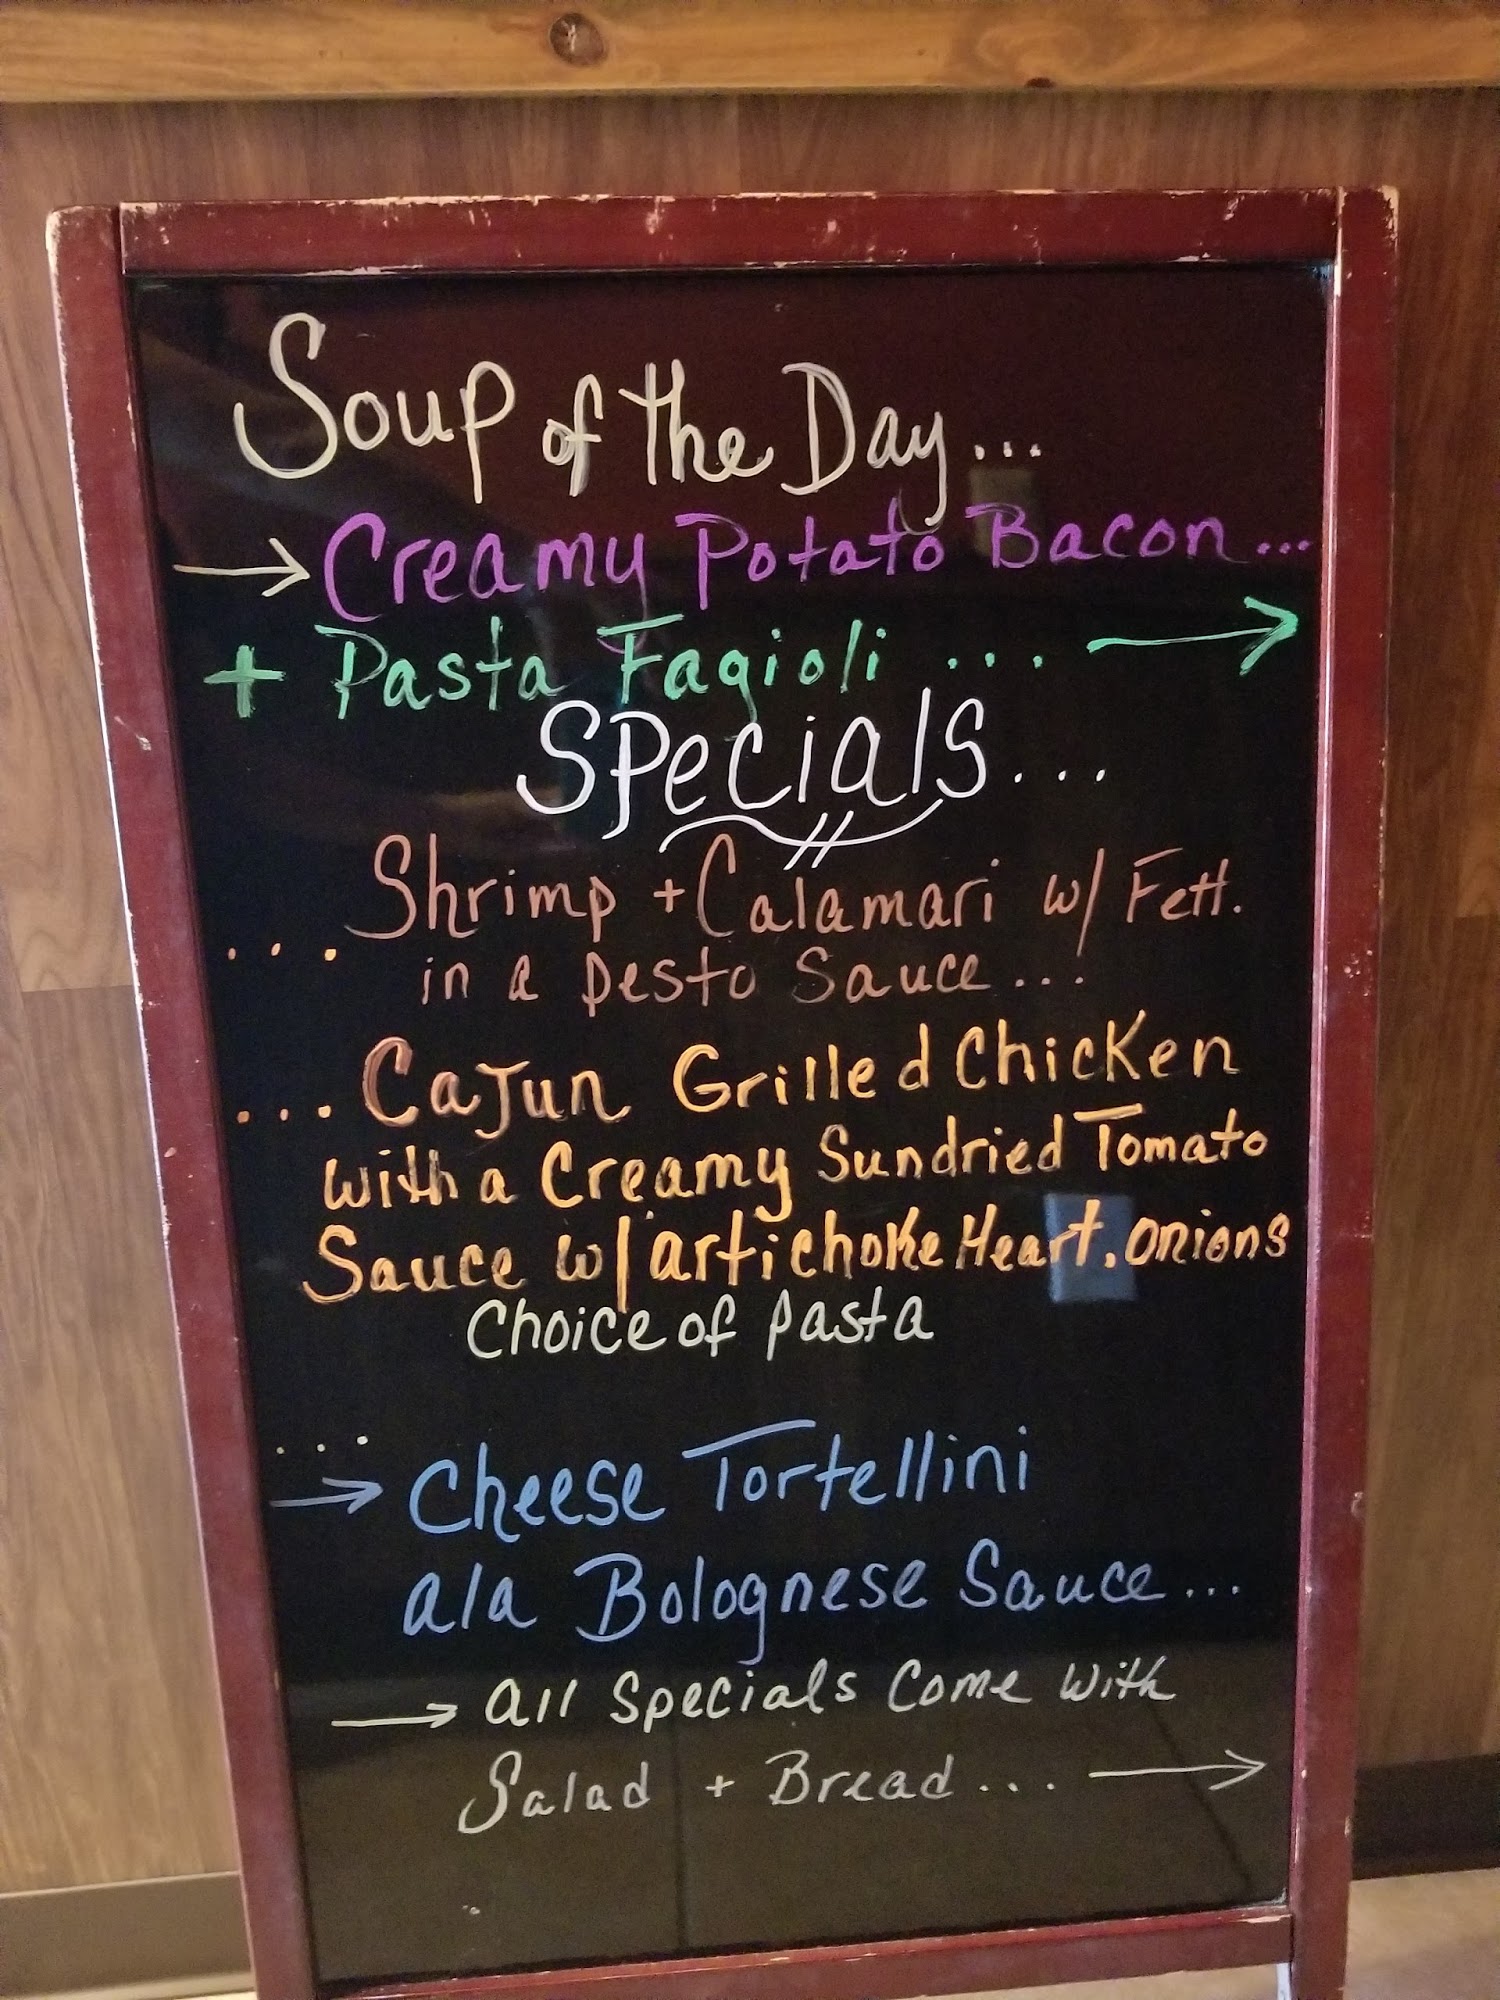 Soup of the Day...
→ Creamy Potato Bacon...
+ Pasta Fagioli ... →
Specials...
Shrimp + Calamari w/ Fett.
... in a pesto Sauce...
... Cajun Grilled Chicken
with a Creamy Sundried Tomato
Sauce w/ artichoke Heart, onions
Choice of pasta
...
→ Cheese Tortellini
ala Bolognese Sauce...
→ all Specials Come with
Salad + Bread... →